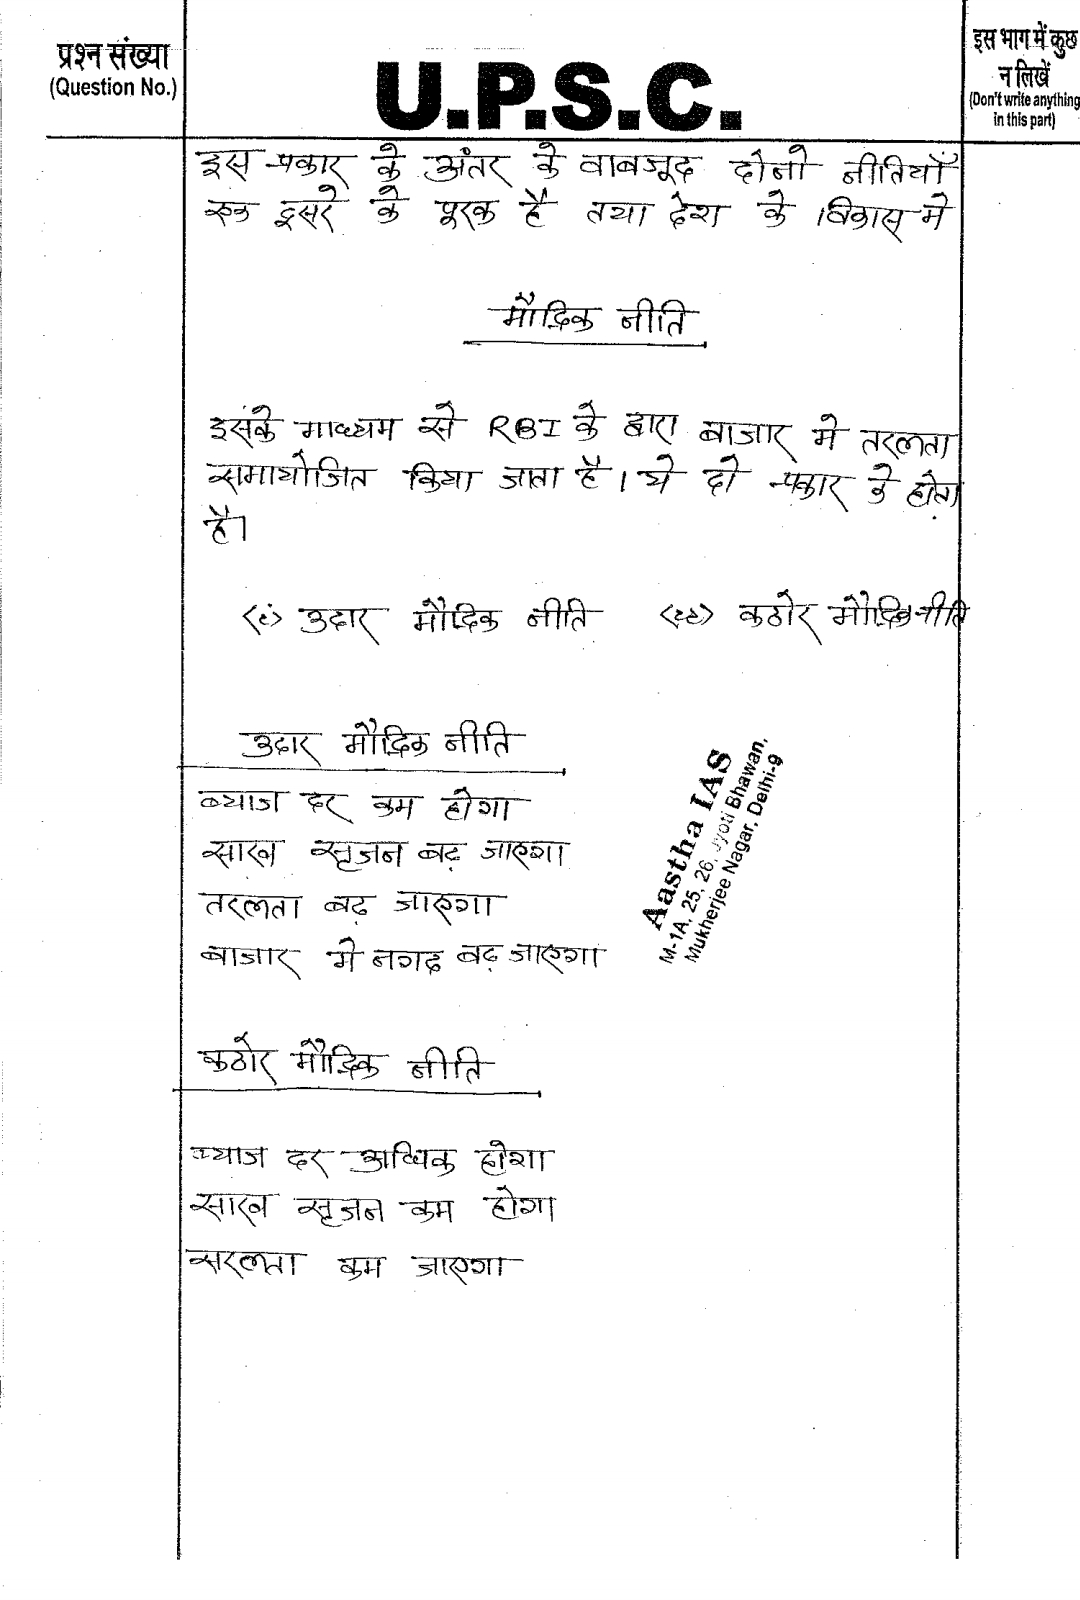 प्रश्न संख्या
(Question No.)
U.P.S.C.
इस भाग में कुछ
न लिखें
(Don't write anything
in this part)
इस प्रकार के अंतर के वाबजूद दोनो नीतियाँ
एक दूसरे के पूरक है तथा देश के विकास मे
मौद्रिक नीति
इसके माध्यम से RBI के द्वारा बाजार मे तरलता
समायोजित किया जाता है। ये दो प्रकार के होता
है।
(i) उदार मौद्रिक नीति (ii) कठोर मौद्रिक नीति
उदार मौद्रिक नीति
ब्याज दर कम होगा
साख सृजन बढ़ जाएगा
तरलता बढ़ जाएगा
बाजार मे नगद बढ़ जाएगा
Aastha IAS
M-1A, 25, 26, Jyoti Bhawan,
Mukherjee Nagar, Delhi-9
कठोर मौद्रिक नीति
ब्याज दर अधिक होगा
साख सृजन कम होगा
तरलता कम जाएगा